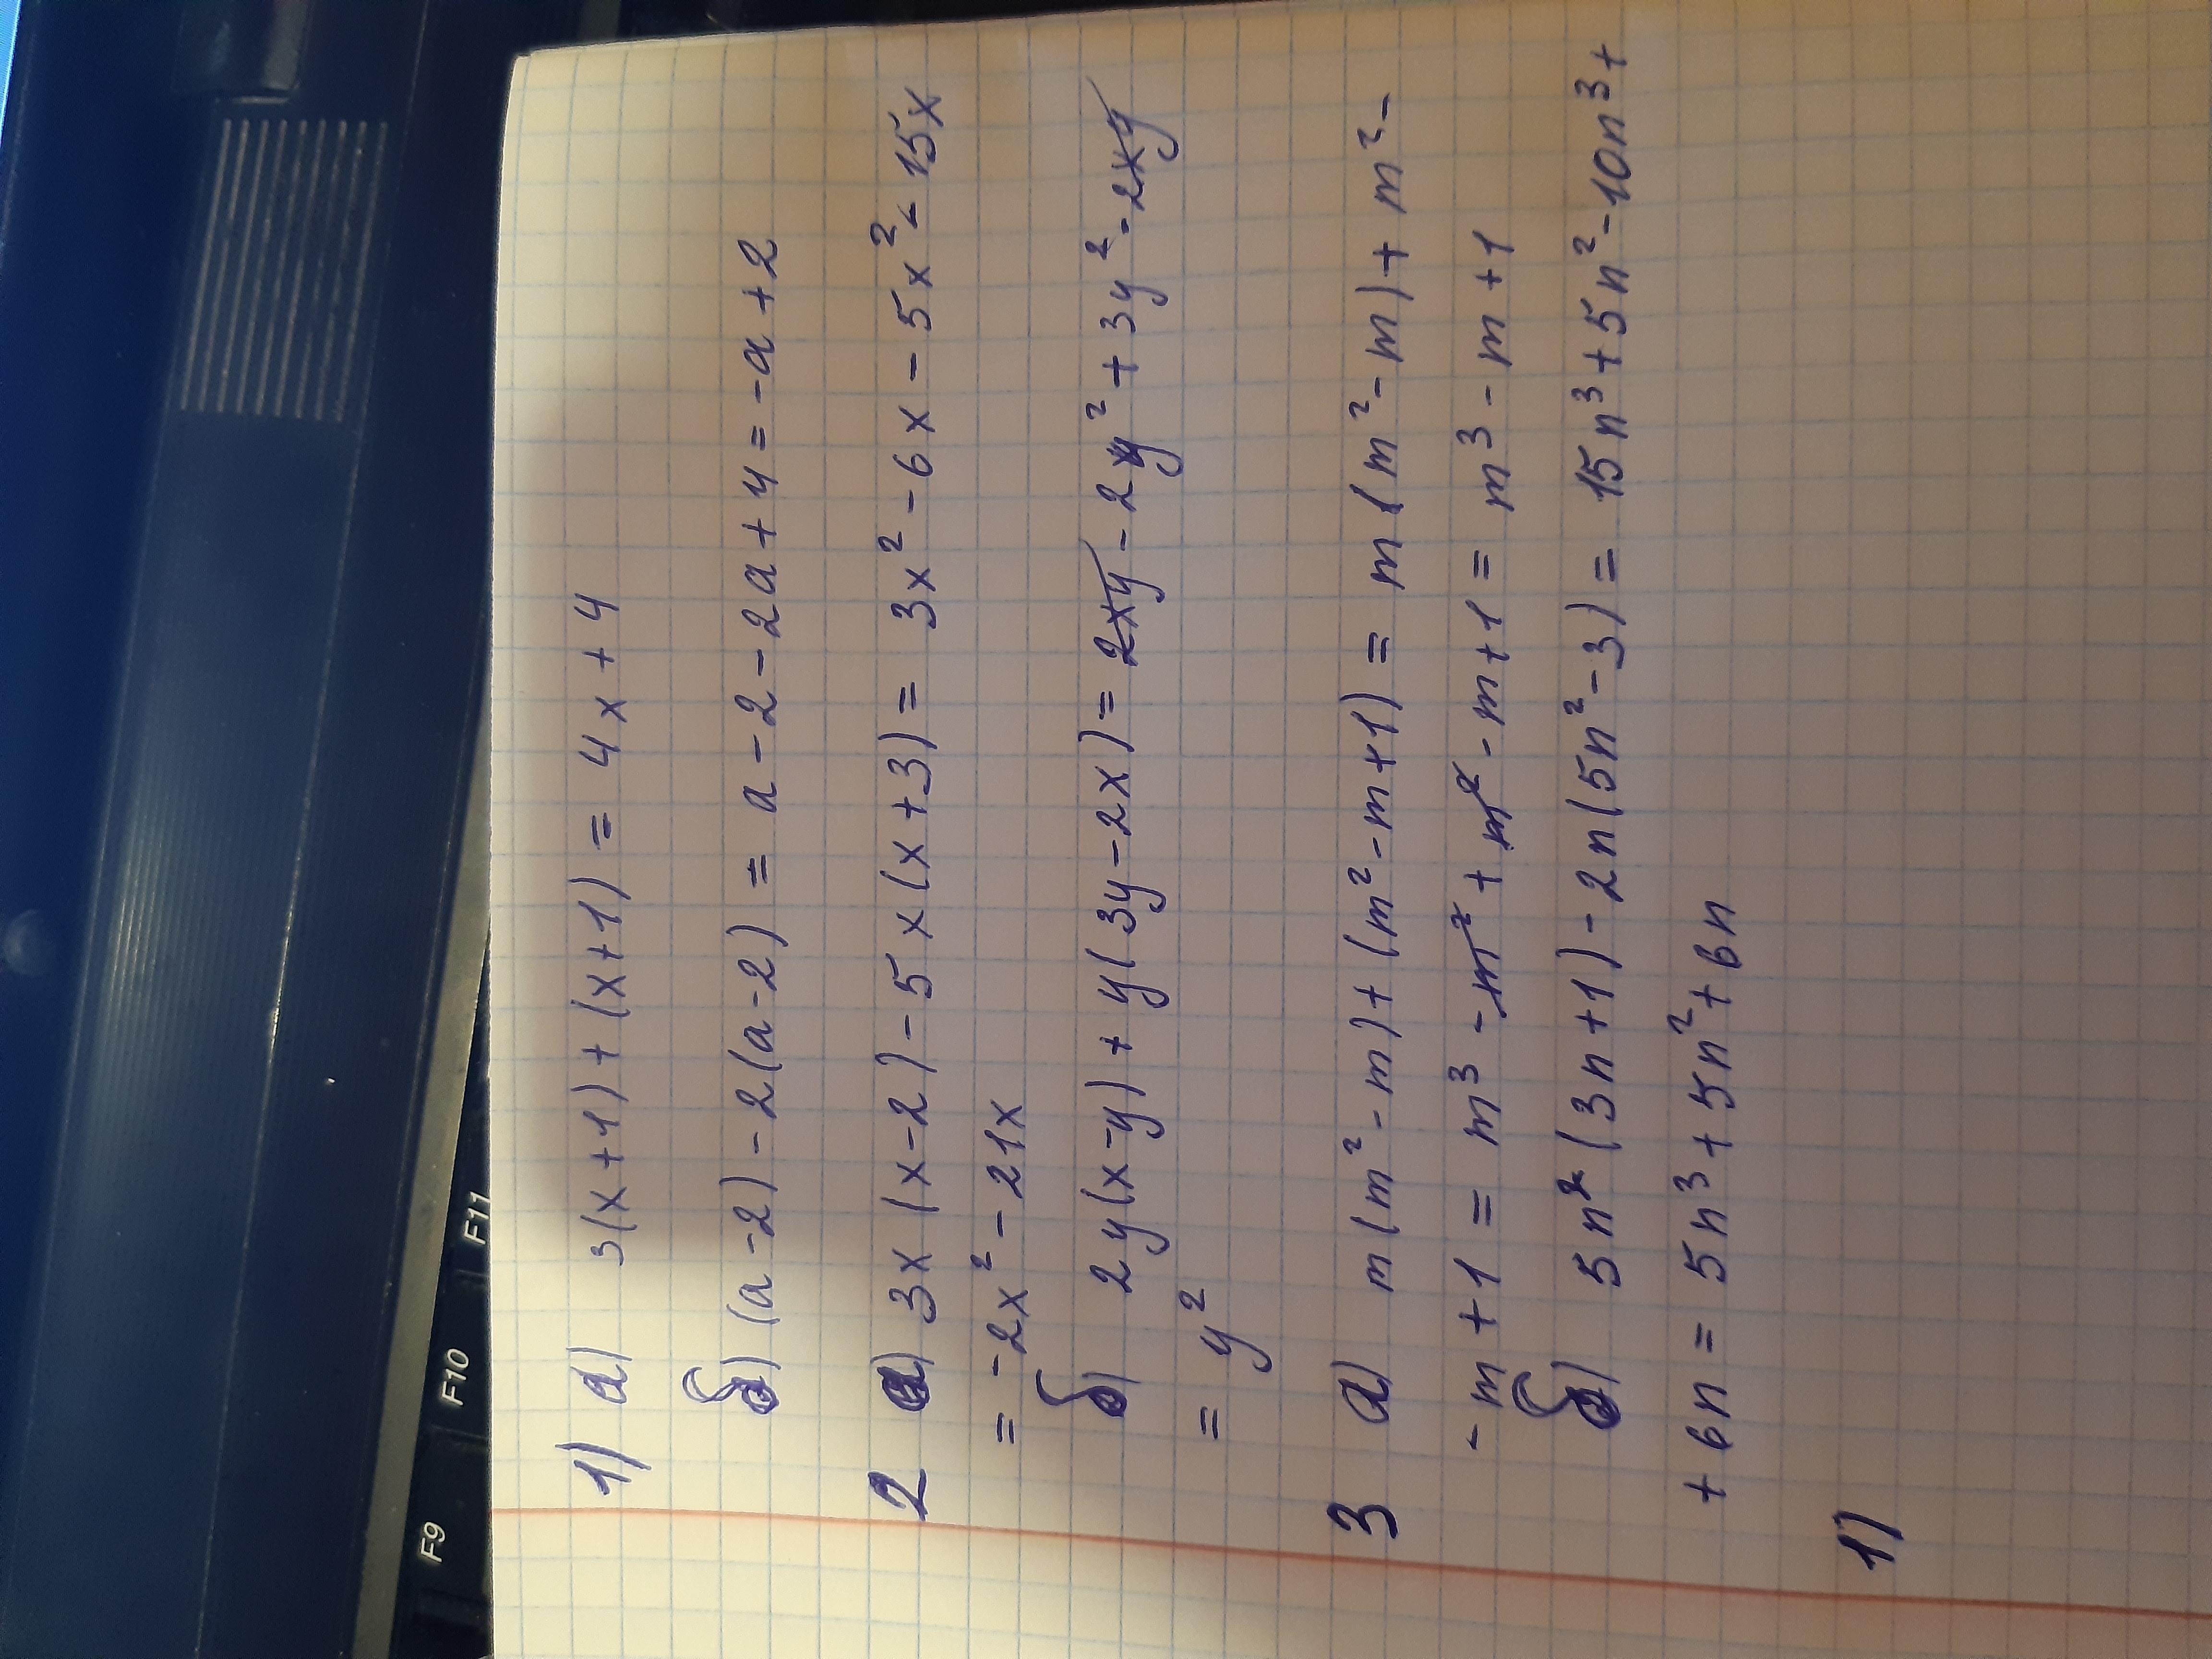 1) а) 3(x+1)+(x+1) = 4x+4
б) (a-2)-2(a-2) = a-2-2a+4 = -a+2
2 а) 3x(x-2)-5x(x+3) = 3x²-6x-5x²-15x
= -2x²-21x
б) 2y(x-y)+y(3y-2x) = 2xy-2y²+3y²-2xy
= y²
3 а) m(m²-m)+(m²-m+1) = m(m²-m)+m²-
-m+1 = m³-m²+m²-m+1 = m³-m+1
б) 5n²(3n+1)-2n(5n²-3) = 15n³+5n²-10n³+
+6n = 5n³+5n²+6n
1)
F9
F10
F11